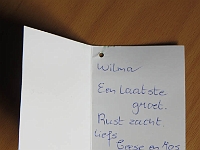 Wilma
Een laatste
groet.
Rust zacht.
Liefs,
en